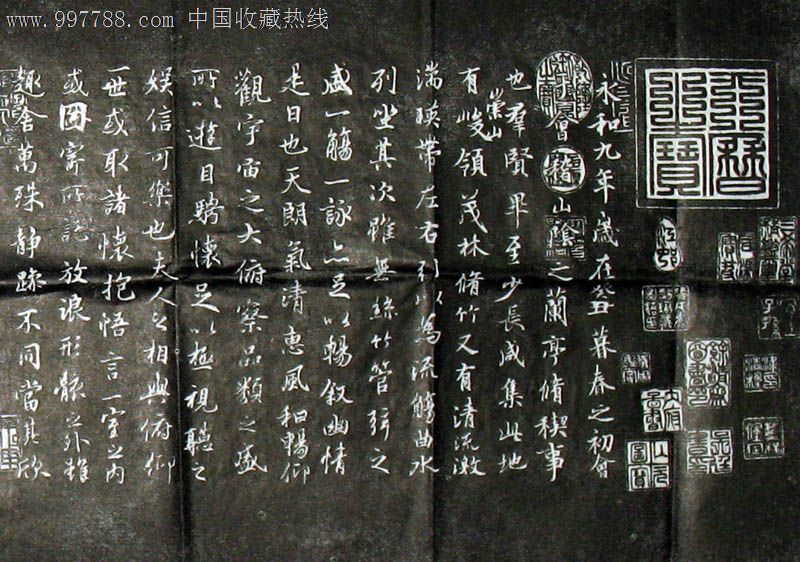 www.997788.com 中国收藏热线
永和九年歲在癸丑暮春之初會
會稽山陰之蘭亭脩稧事
也羣賢畢至少長咸集此地
有崇山峻領茂林脩竹又有清流激
湍暎帶左右引以為流觴曲水
列坐其次雖無絲竹管弦之
盛一觴一詠亦足以暢叙幽情
是日也天朗氣清惠風和暢仰
觀宇宙之大俯察品類之盛
所以遊目騁懷足以極視聽之
娛信可樂也夫人之相與俯仰
一世或取諸懷抱悟言一室之內
或因寄所託放浪形骸之外雖
趣舍萬殊静躁不同當其欣